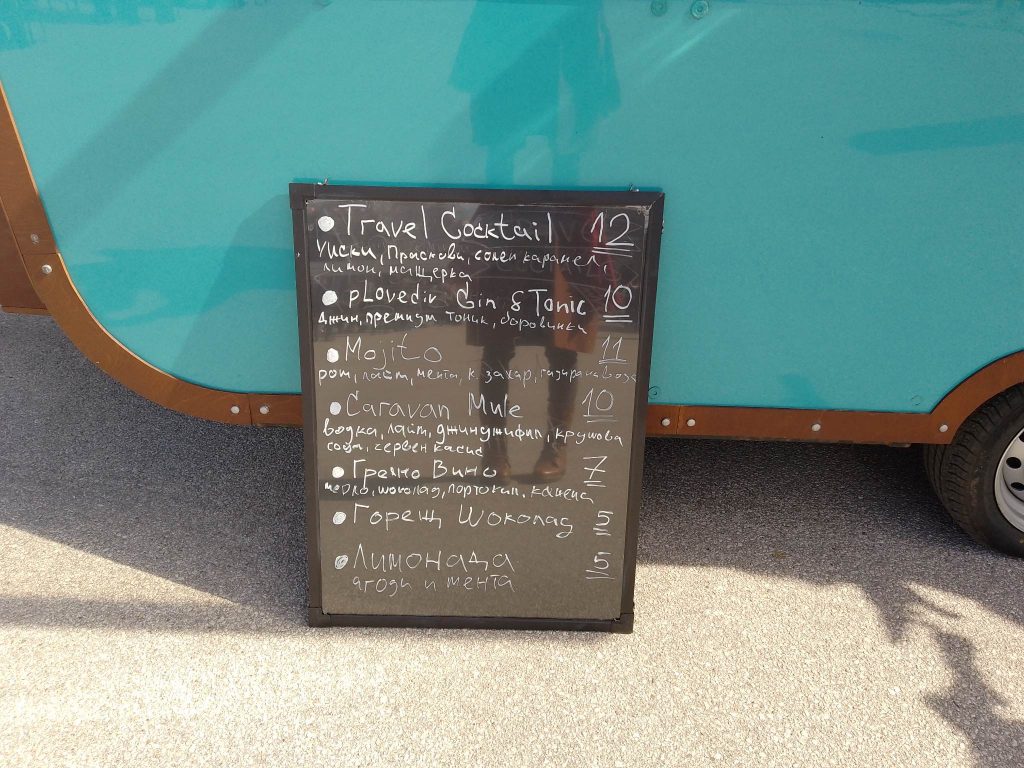 Travel Cocktail 12
Уиски, Праскови, солен карамел,
лимон, мащерка
pLovediv Gin & Tonic 10
Джин, премиум тоник, боровинки
Mojito 11
ром, лайм, мента, к. захар, газирана вода
Caravan Mule 10
водка, лайм, джинджифил, крушова
сода, червен касис
Греяно Вино 7
шоколад, портокал, канела
Горещ Шоколад 5
Лимонада 5
ягоди и мента